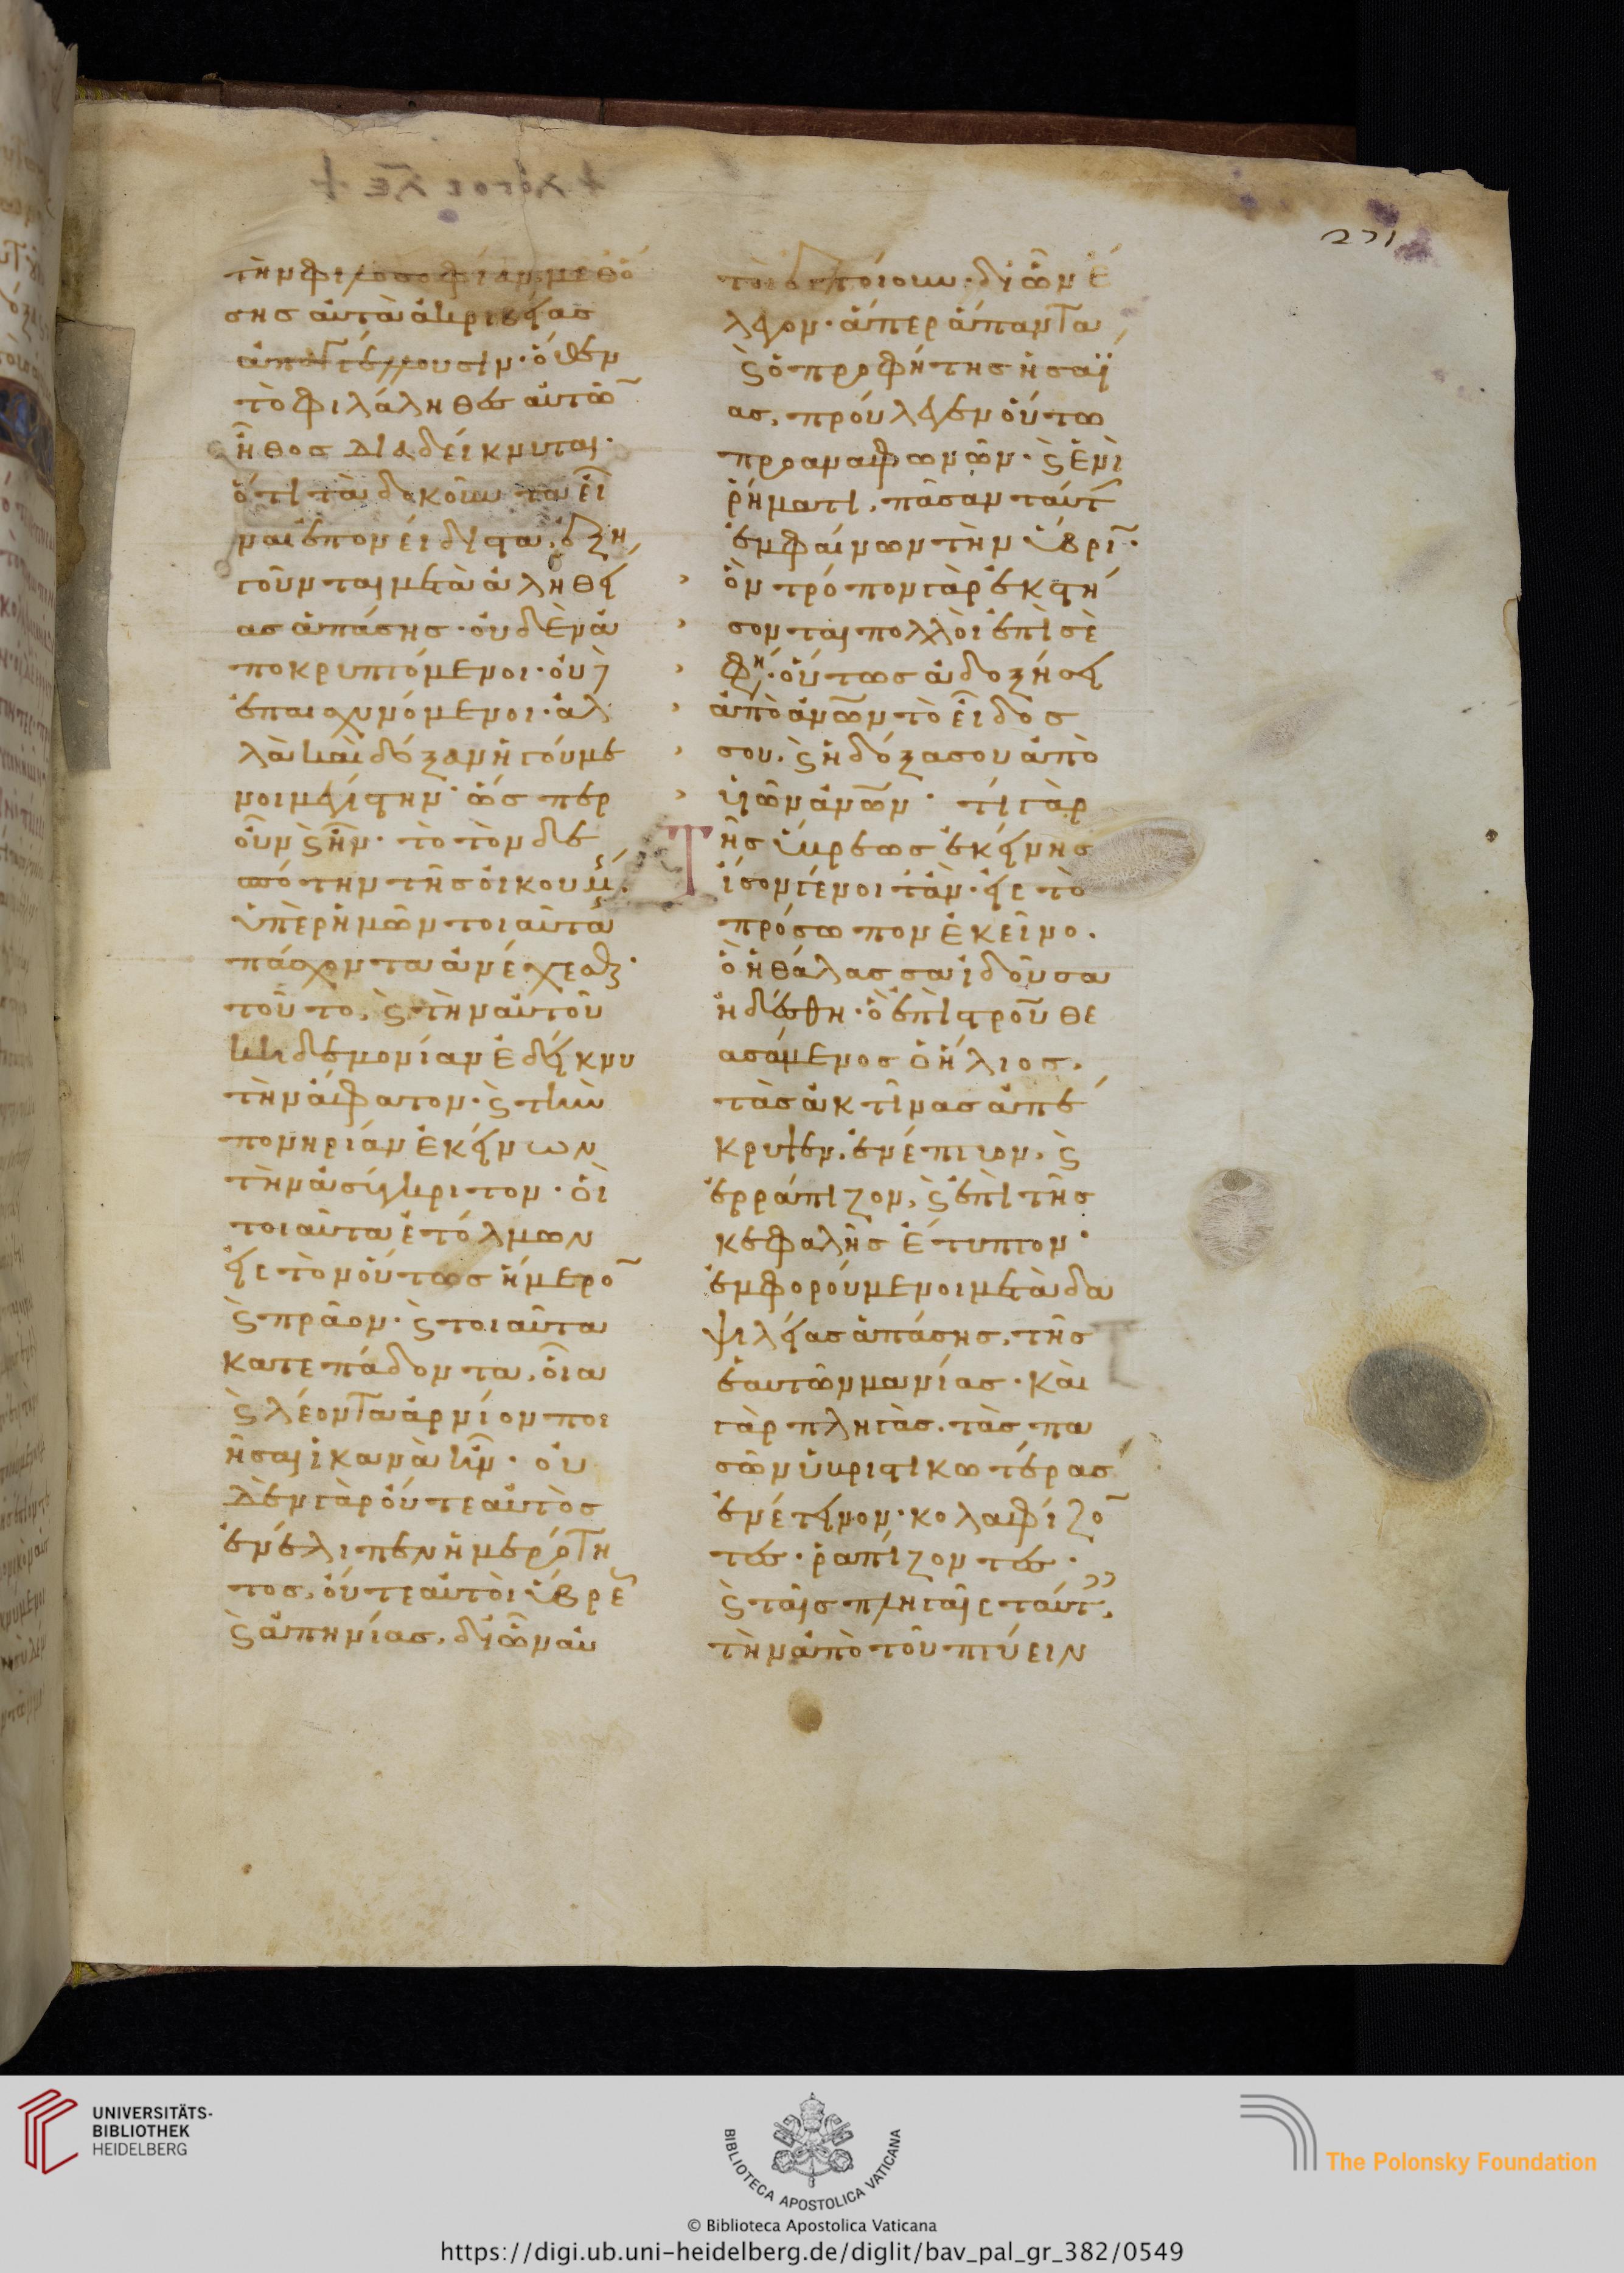 + λόγος λε +
271
τὴν φιλοσοφίαν μεθ ὅ
σης αὐτὰ ἀκριβείας
ἀπαγγέλλουσιν· ὅθεν
τὸ φιλάληθες αὐτῶ
ἦθος διαδείκνυται·
ὅτι τὰ δοκοῦντα εἶ
ναι ἐπονείδιστα, ἐξη
γοῦνται μετὰ ἀληθεί
ας ἁπάσης· οὐδὲν ἀ
ποκρυπτόμενοι· οὐδὲ
ἐπαισχυνόμενοι· ἀλ
λὰ καὶ δόξαν ἡγούμε
νοι μεγίστην· ὥσπερ
οὖν ϛ ἦν· τὸ τὸν δε
σπότην τῆς οἰκουμ
ὑπὲρ ἡμῶν τοιαῦτα
πάσχοντα ἀνέχεσθαι·
τοῦτο, ϛ τὴν αὐτοῦ
κηδεμονίαν ἐδείκνυ
τὴν ἄφατον· ϛ τὴν
πονηρίαν ἐκείνων
τὴν ἀσύγκριτον· οἱ
τοιαῦτα ἐτόλμων
εἰς τὸν οὕτως ἥμερο
ϛ πρᾶον· ϛ τοιαῦτα
κατεπάδοντα, οἷα
ϛ λέοντα ἀρνίον ποι
ῆσαι ἱκανὰ ἦν· οὐ
δὲν γὰρ οὔτε αὐτὸς
ἐνέλιπεν ἡμερότη
τος, οὔτε αὐτοὶ ὕβρε
ϛ ἀπηνίας, δι ὧν
ἐποίουν· δι ὧν ἔ
λεγον· ἅπερ ἅπαντα
ϛ ὁ προφήτης ἡσαΐ
ας, προύλεγεν οὕτω
προαναφωνῶν· ϛ ἑνὶ
ῥήματι, πᾶσαν ταύτ
ἐμφαίνων τὴν ὕβρι·
ὃν τρόπον γὰρ ἐκστή
σονται πολλοὶ ἐπὶ σὲ
φη· οὕτως ἀδοξήσει
ἀπὸ ἀνων τὸ εἶδος
σου. ϛ ἡ δόξα σου ἀπὸ
υἱῶν ἀνων· τί γὰρ
Τῆς ὕβρεως ἐκείνης
ἴσον γένοιτ ἄν· εἰς τὸ
πρόσωπον ἐκεῖνο.
ὃ ἡ θάλασσα ἰδοῦσα
ἠδέσθη· ὃ ἐπὶ στροῦ θε
ασάμενος ὁ ἥλιος.
τὰς ἀκτῖνας ἀπέ
κρυψεν. ἐνέπτυον, ϛ
ἐρράπιζον, ϛ ἐπὶ τῆς
κεφαλῆς ἔτυπτον·
ἐμφορούμενοι μετὰ δα
ψιλείας ἁπάσης, τῆς
ἑαυτῶν μανίας· καὶ
γὰρ πληγὰς. τὰς πα
σῶν ὑβριστικωτέρας
ἐνέτεινον· κολαφίζο
τες· ῥαπίζοντες·
ϛ ταῖς πληγαῖς ταύτ,
τὴν ἀπὸ τοῦ πτύειν
UNIVERSITÄTS-
BIBLIOTHEK
HEIDELBERG
BIBLIOTECA APOSTOLICA VATICANA
The Polonsky Foundation
© Biblioteca Apostolica Vaticana
https://digi.ub.uni-heidelberg.de/diglit/bav_pal_gr_382/0549